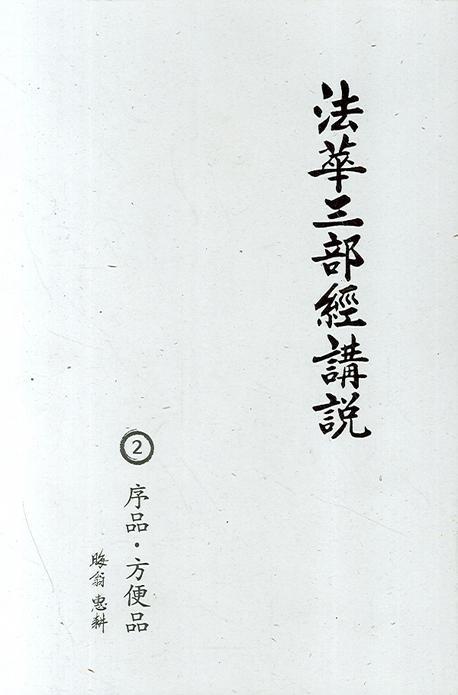 法華三部經講説
2
序品·方便品
晦翁 惠耕